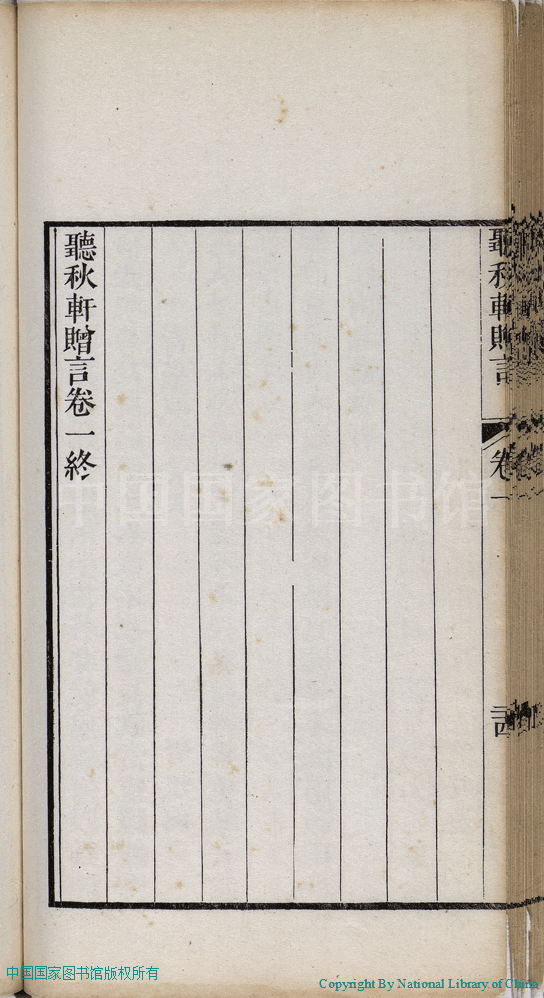 聽秋軒贈言
卷一
聽秋軒贈言卷一終
中国国家图书馆
中国国家图书馆版权所有
Copyright By National Library of China